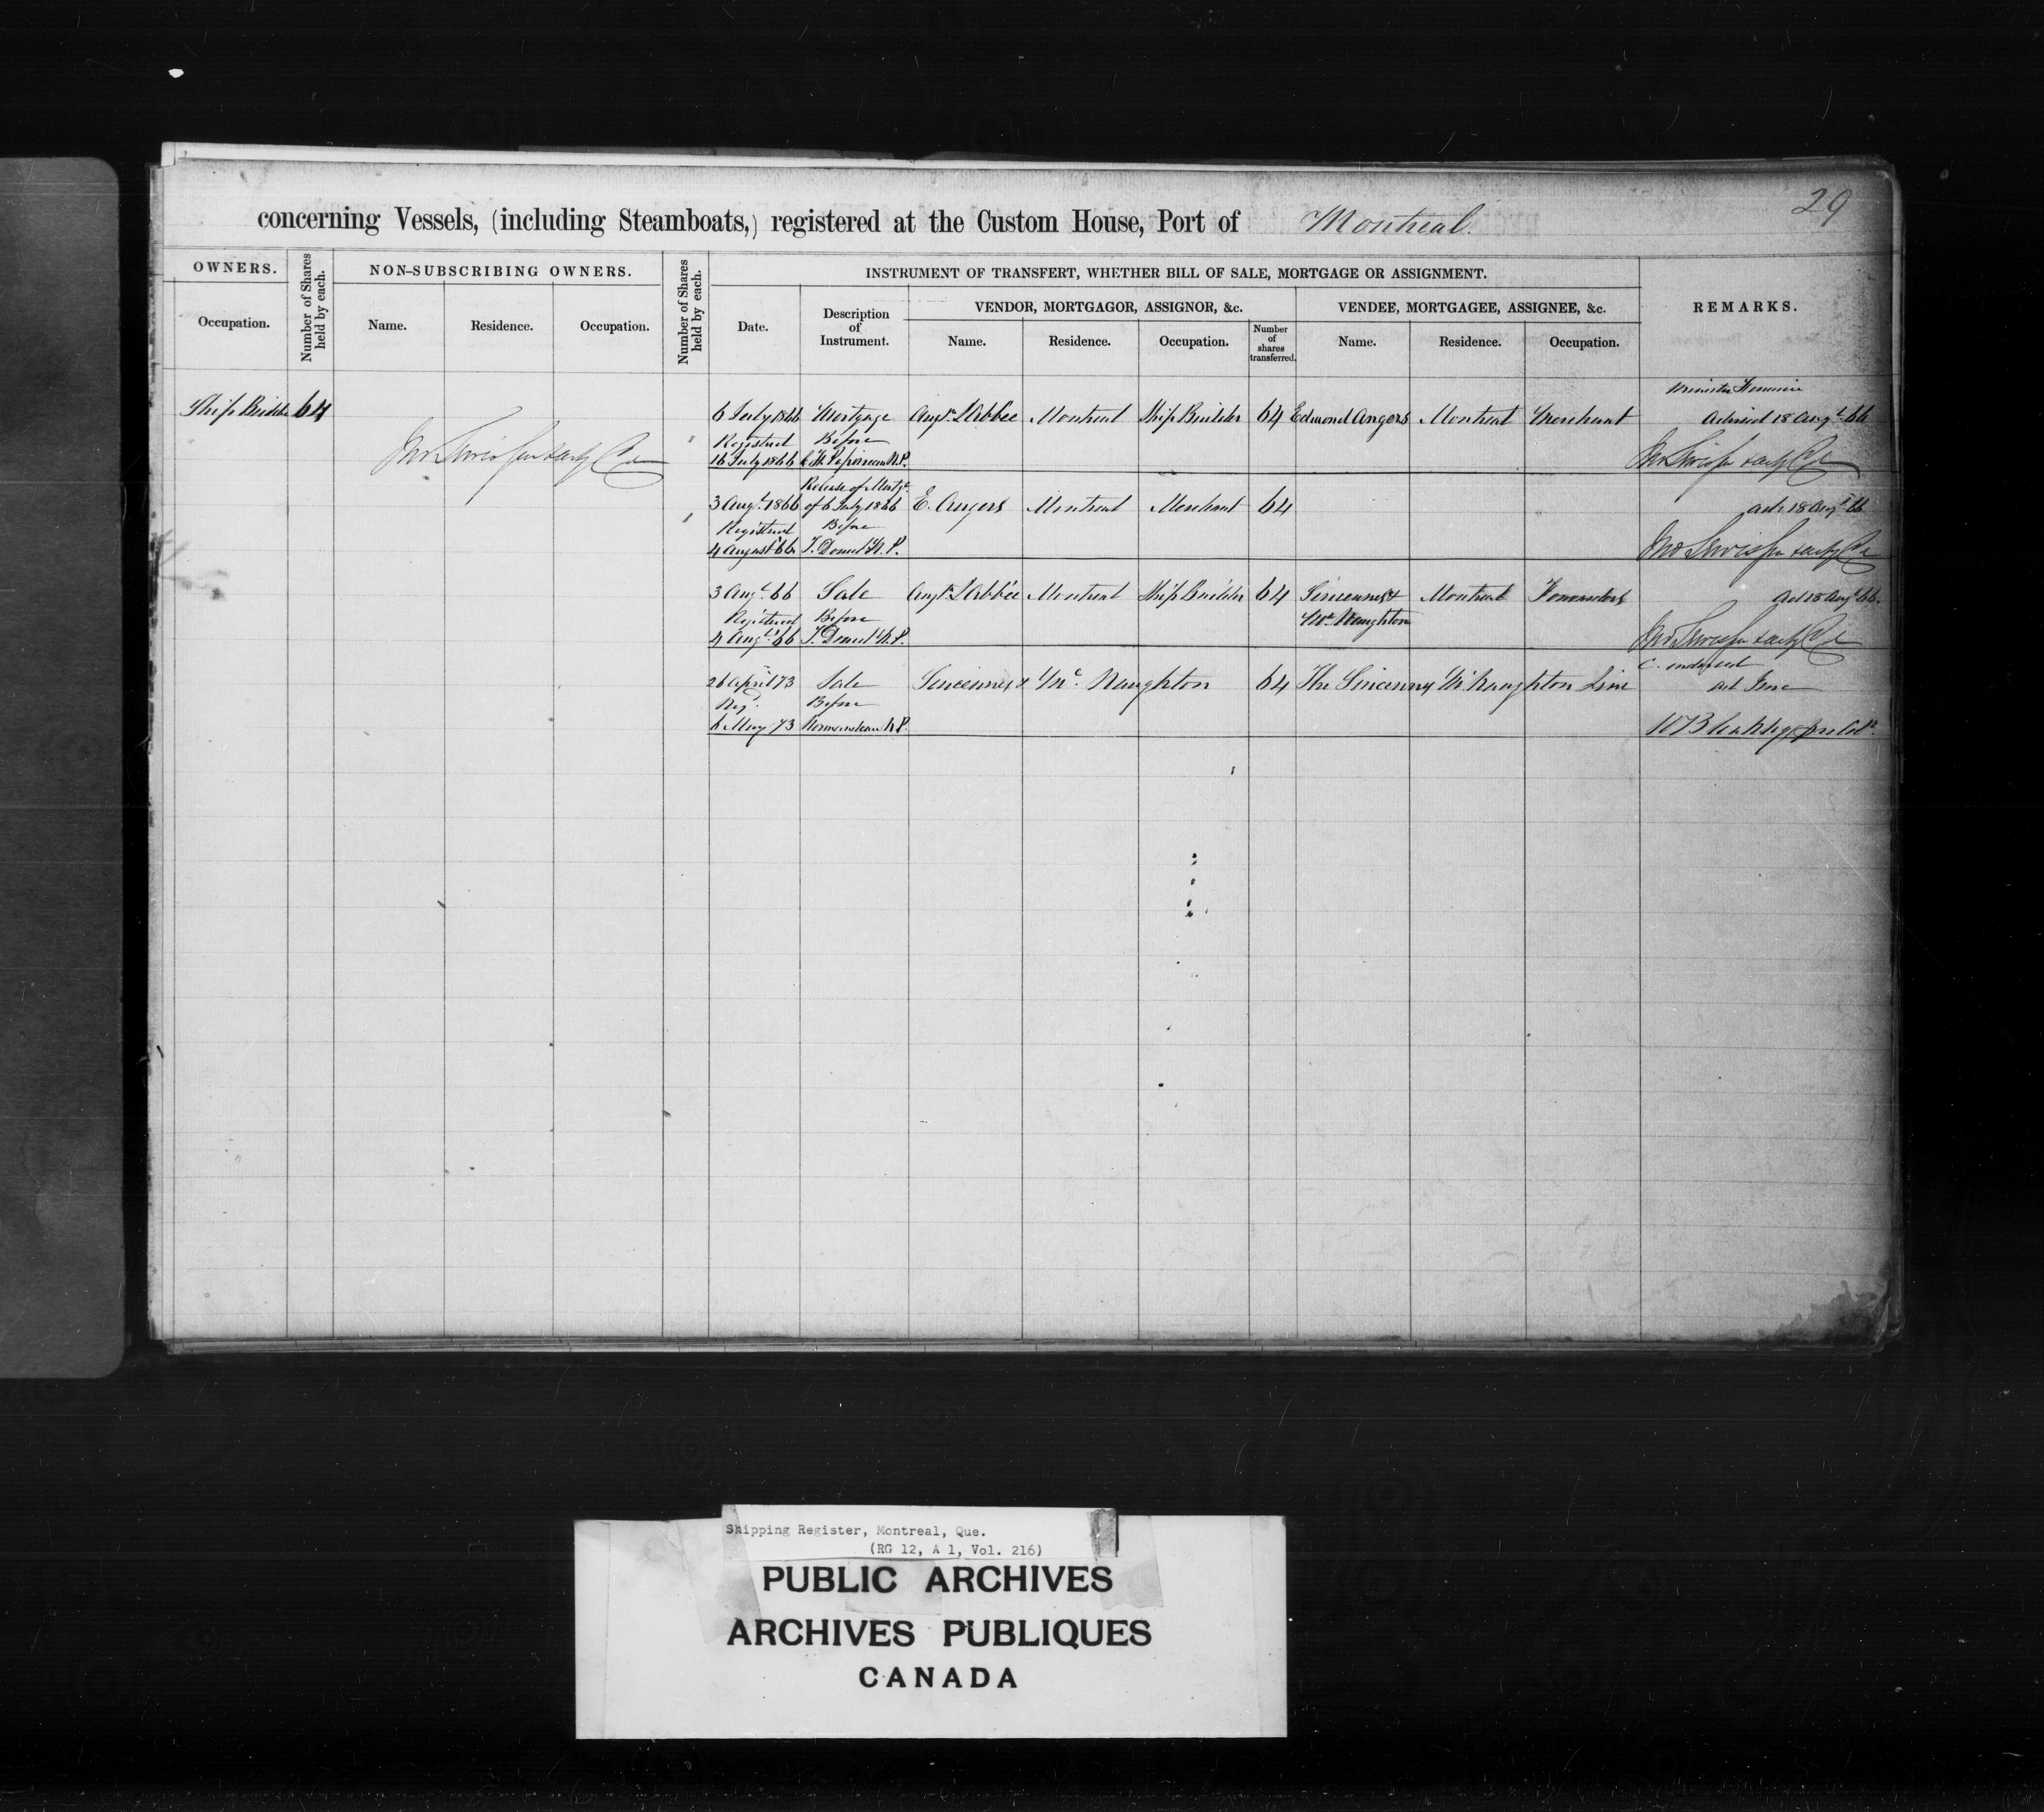 29
concerning Vessels, (including Steamboats,) registered at the Custom House, Port of Montreal.
OWNERS.
Number of Shares held by each.
NON-SUBSCRIBING OWNERS.
Number of Shares held by each.
INSTRUMENT OF TRANSFERT, WHETHER BILL OF SALE, MORTGAGE OR ASSIGNMENT.
REMARKS.
VENDOR, MORTGAGOR, ASSIGNOR, &c.
VENDEE, MORTGAGEE, ASSIGNEE, &c.
Occupation.
Name.
Residence.
Occupation.
Date.
Description of Instrument.
Name.
Residence.
Occupation.
Number of shares transferred.
Name.
Residence.
Occupation.
Ship Builder 64
6 July 1866 Mortgage Augt. L'Abbée Montreal Ship Builder 64 Edmond Angers Montreal Merchant Advised 18 Augt. 66
Registered Before
16 July 1866 Papineau N.P.
Release of Mortge.
3 Augt. 1866 of 6 July 1866 E. Angers Montreal Merchant 64 adv 18 Augt 66
Registered Before
4 August 66 T. Doucet N.P.
3 Augt. 66 Sale Augt. L'Abbée Montreal Ship Builder 64 Sincennes & Montreal Forwarders ad 18 Augt 66.
Registered Before Mc Naughton
4 Augt. 66 T. Doucet N.P.
26 April 73 Sale Sincennes & Mc Naughton 64 The Sincennes McNaughton Line
Regd. Before
6 May 73 Normandeau N.P.
Shipping Register, Montreal, Que.
(RG 12, A 1, Vol. 216)
PUBLIC ARCHIVES
ARCHIVES PUBLIQUES
CANADA